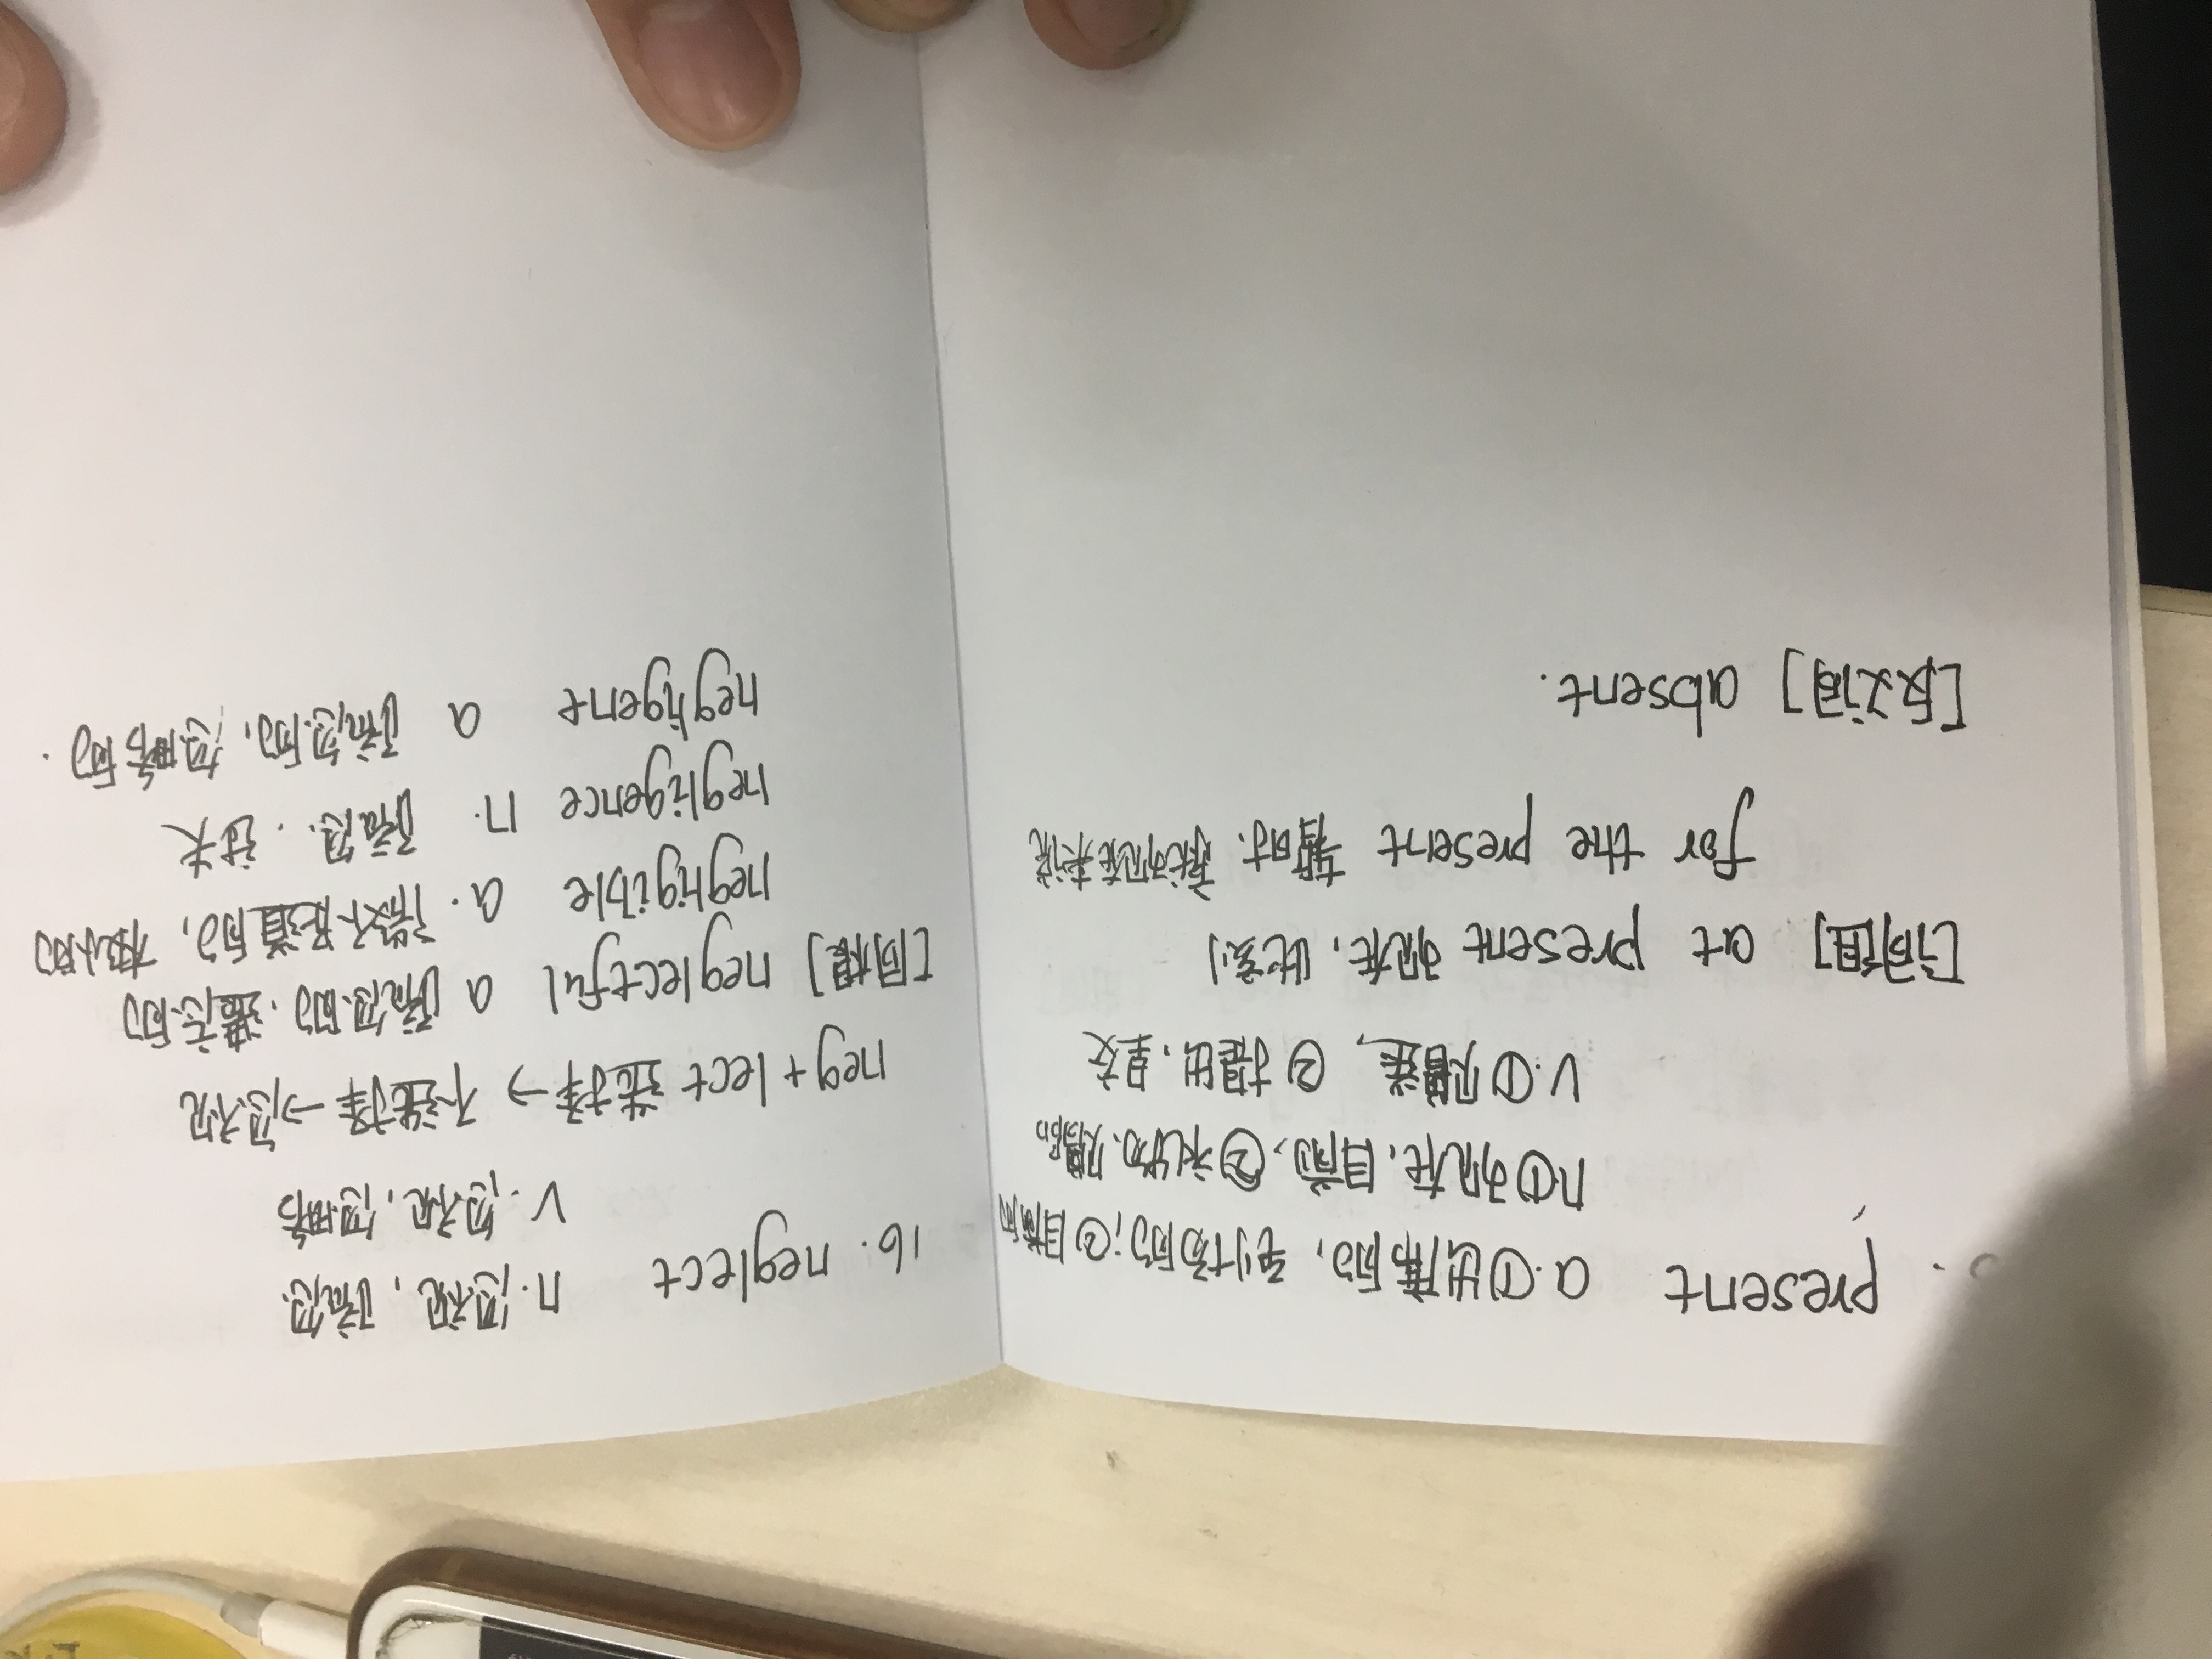 present a.①出席的,到场的;②目前的
n①现在,目前,②礼物、赠品
v.①赠送,②提出,呈交
[词组] at present 现在,此刻
for the present 暂时.就现在来说
[反义词] absent.
16. neglect n.忽视,疏忽.
v.忽视,忽略
neg+lect 选择→不选择→忽视
[同根] neglectful a 疏忽的.遗忘的
negligible a. 微不足道的,极小的
negligence n. 疏忽.过失
negligent a 疏忽的,忽略的.